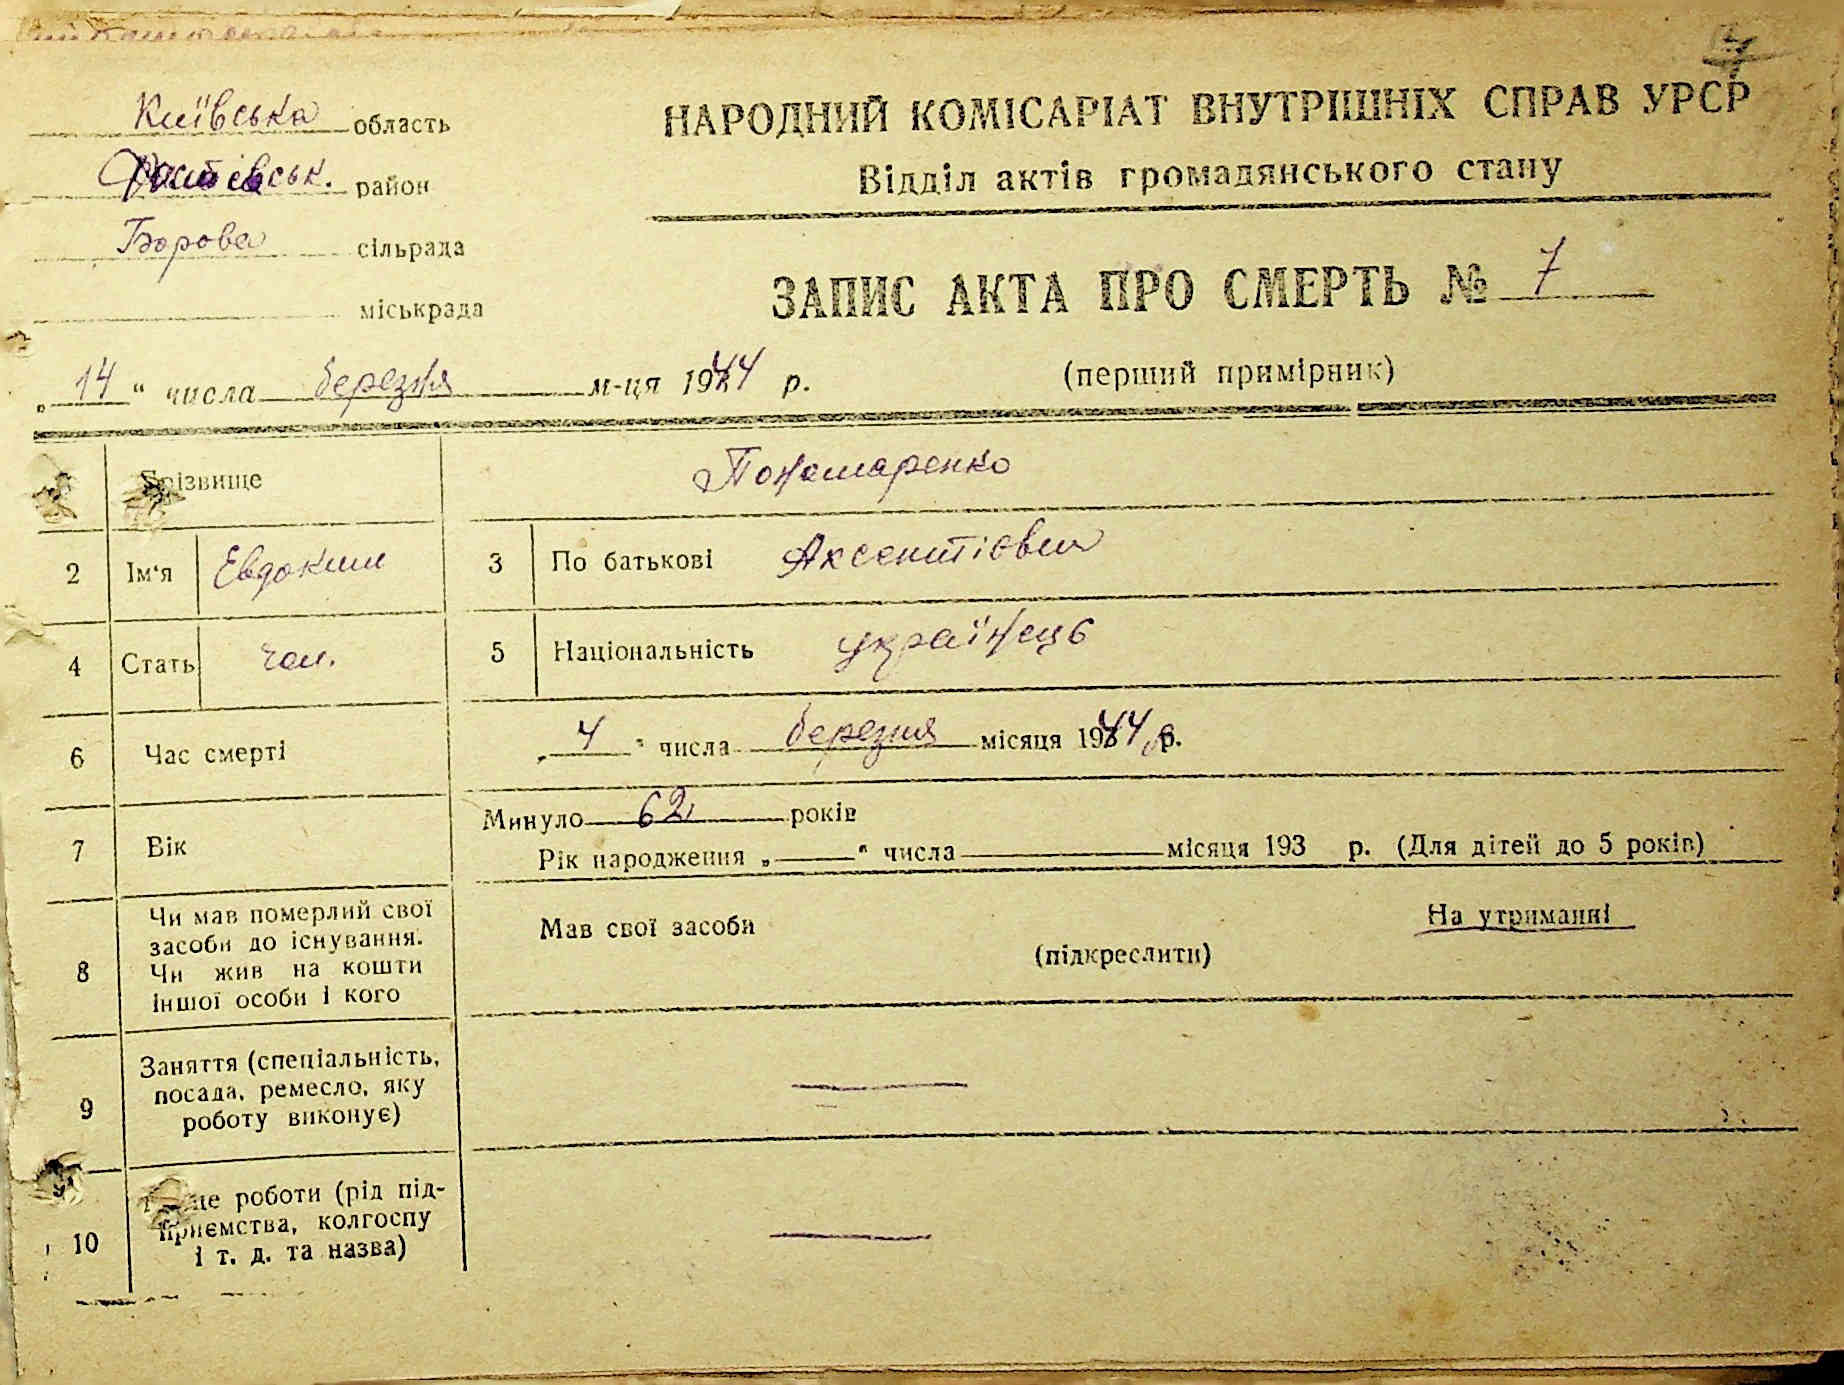 Київська область
Фастівськ. район
Борова сільрада
міськрада
НАРОДНИЙ КОМІСАРІАТ ВНУТРІШНІХ СПРАВ УРСР
Відділ актів громадянського стану
ЗАПИС АКТА ПРО СМЕРТЬ № 7
(перший примірник)
„14“ числа березня м-ця 1944 р.
Прізвище Пономаренко
2 Ім'я Евдоким 3 По батькові Аксентієвич
4 Стать чол. 5 Національність українець
6 Час смерті „4“ числа березня місяця 1944 р.
7 Вік Минуло 62 років
Рік народження „ “ числа місяця 193 р. (Для дітей до 5 років)
8 Чи мав померлий свої
засоби до існування.
Чи жив на кошти
іншої особи і кого
Мав свої засоби На утриманні
(підкреслити)
9 Заняття (спеціальність,
посада, ремесло, яку
роботу виконує) —
10 роботи (рід під-
приємства, колгоспу
і т. д. та назва) —